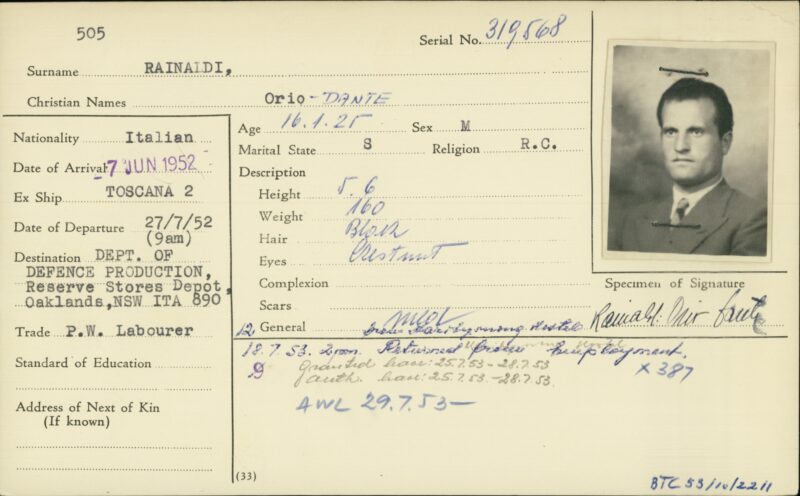 505
Serial No. 319568
Surname RAINALDI,
Christian Names Orio-DANTE
Nationality Italian
Date of Arrival -7 JUN 1952
Ex Ship TOSCANA 2
Date of Departure 27/7/52
(9am)
Destination DEPT. OF
DEFENCE PRODUCTION,
Reserve Stores Depot,
Oaklands, NSW ITA 890
Trade P.W. Labourer
Standard of Education
Address of Next of Kin
(If known)
Age 16.1.25 Sex M
Marital State S Religion R.C.
Description
Height 5.6
Weight 160
Hair Black
Eyes Chestnut
Complexion
Scars
General
Specimen of Signature
Rainaldi Orio Dante
18.7.53. Returned from Employment.
Granted leave: 25.7.53-28.7.53
leave: 25.7.53-28.7.53
X387
AWL 29.7.53-
(33)
BTC 53/10/2211